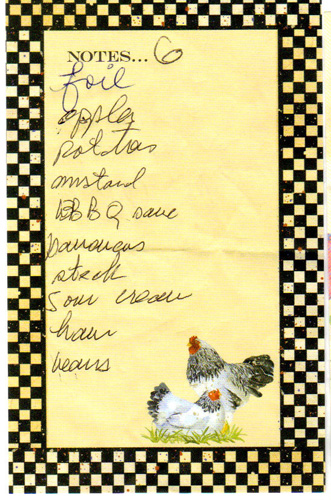 NOTES... 6
foil
apples
potatoes
mustard
BBQ sauce
bananas
steak
sour cream
ham
beans